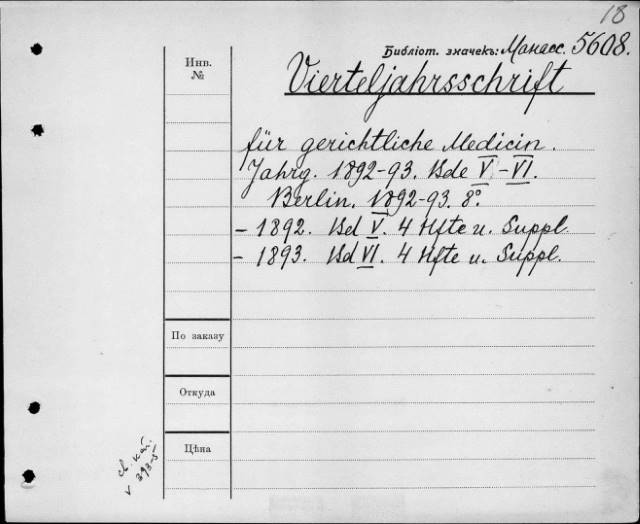 18
Библіот. значекъ: Манасс. 5608.
Инв.
№
Vierteljahrsschrift
für gerichtliche Medicin.
Jahrg. 1892-93. Bde V-VI.
Berlin. 1892-93. 8º.
- 1892. Bd V. 4 Hfte u. Suppl.
- 1893. Bd VI. 4 Hfte u. Suppl.
По заказу
Откуда
Цѣна
св. кат.
v 393-5